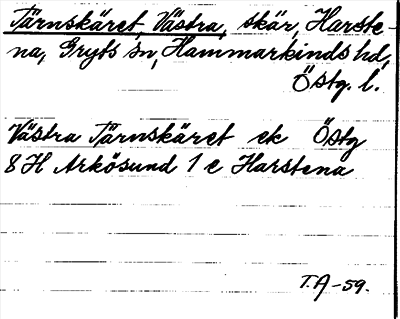 Tärnskäret, Västra, skär, Harste-
na, Gryts sn, Hammarkinds hd,
Östg. l.
Västra Tärnskäret ek Östg
8 H Arkösund 1 c Harstena
T.A-59.